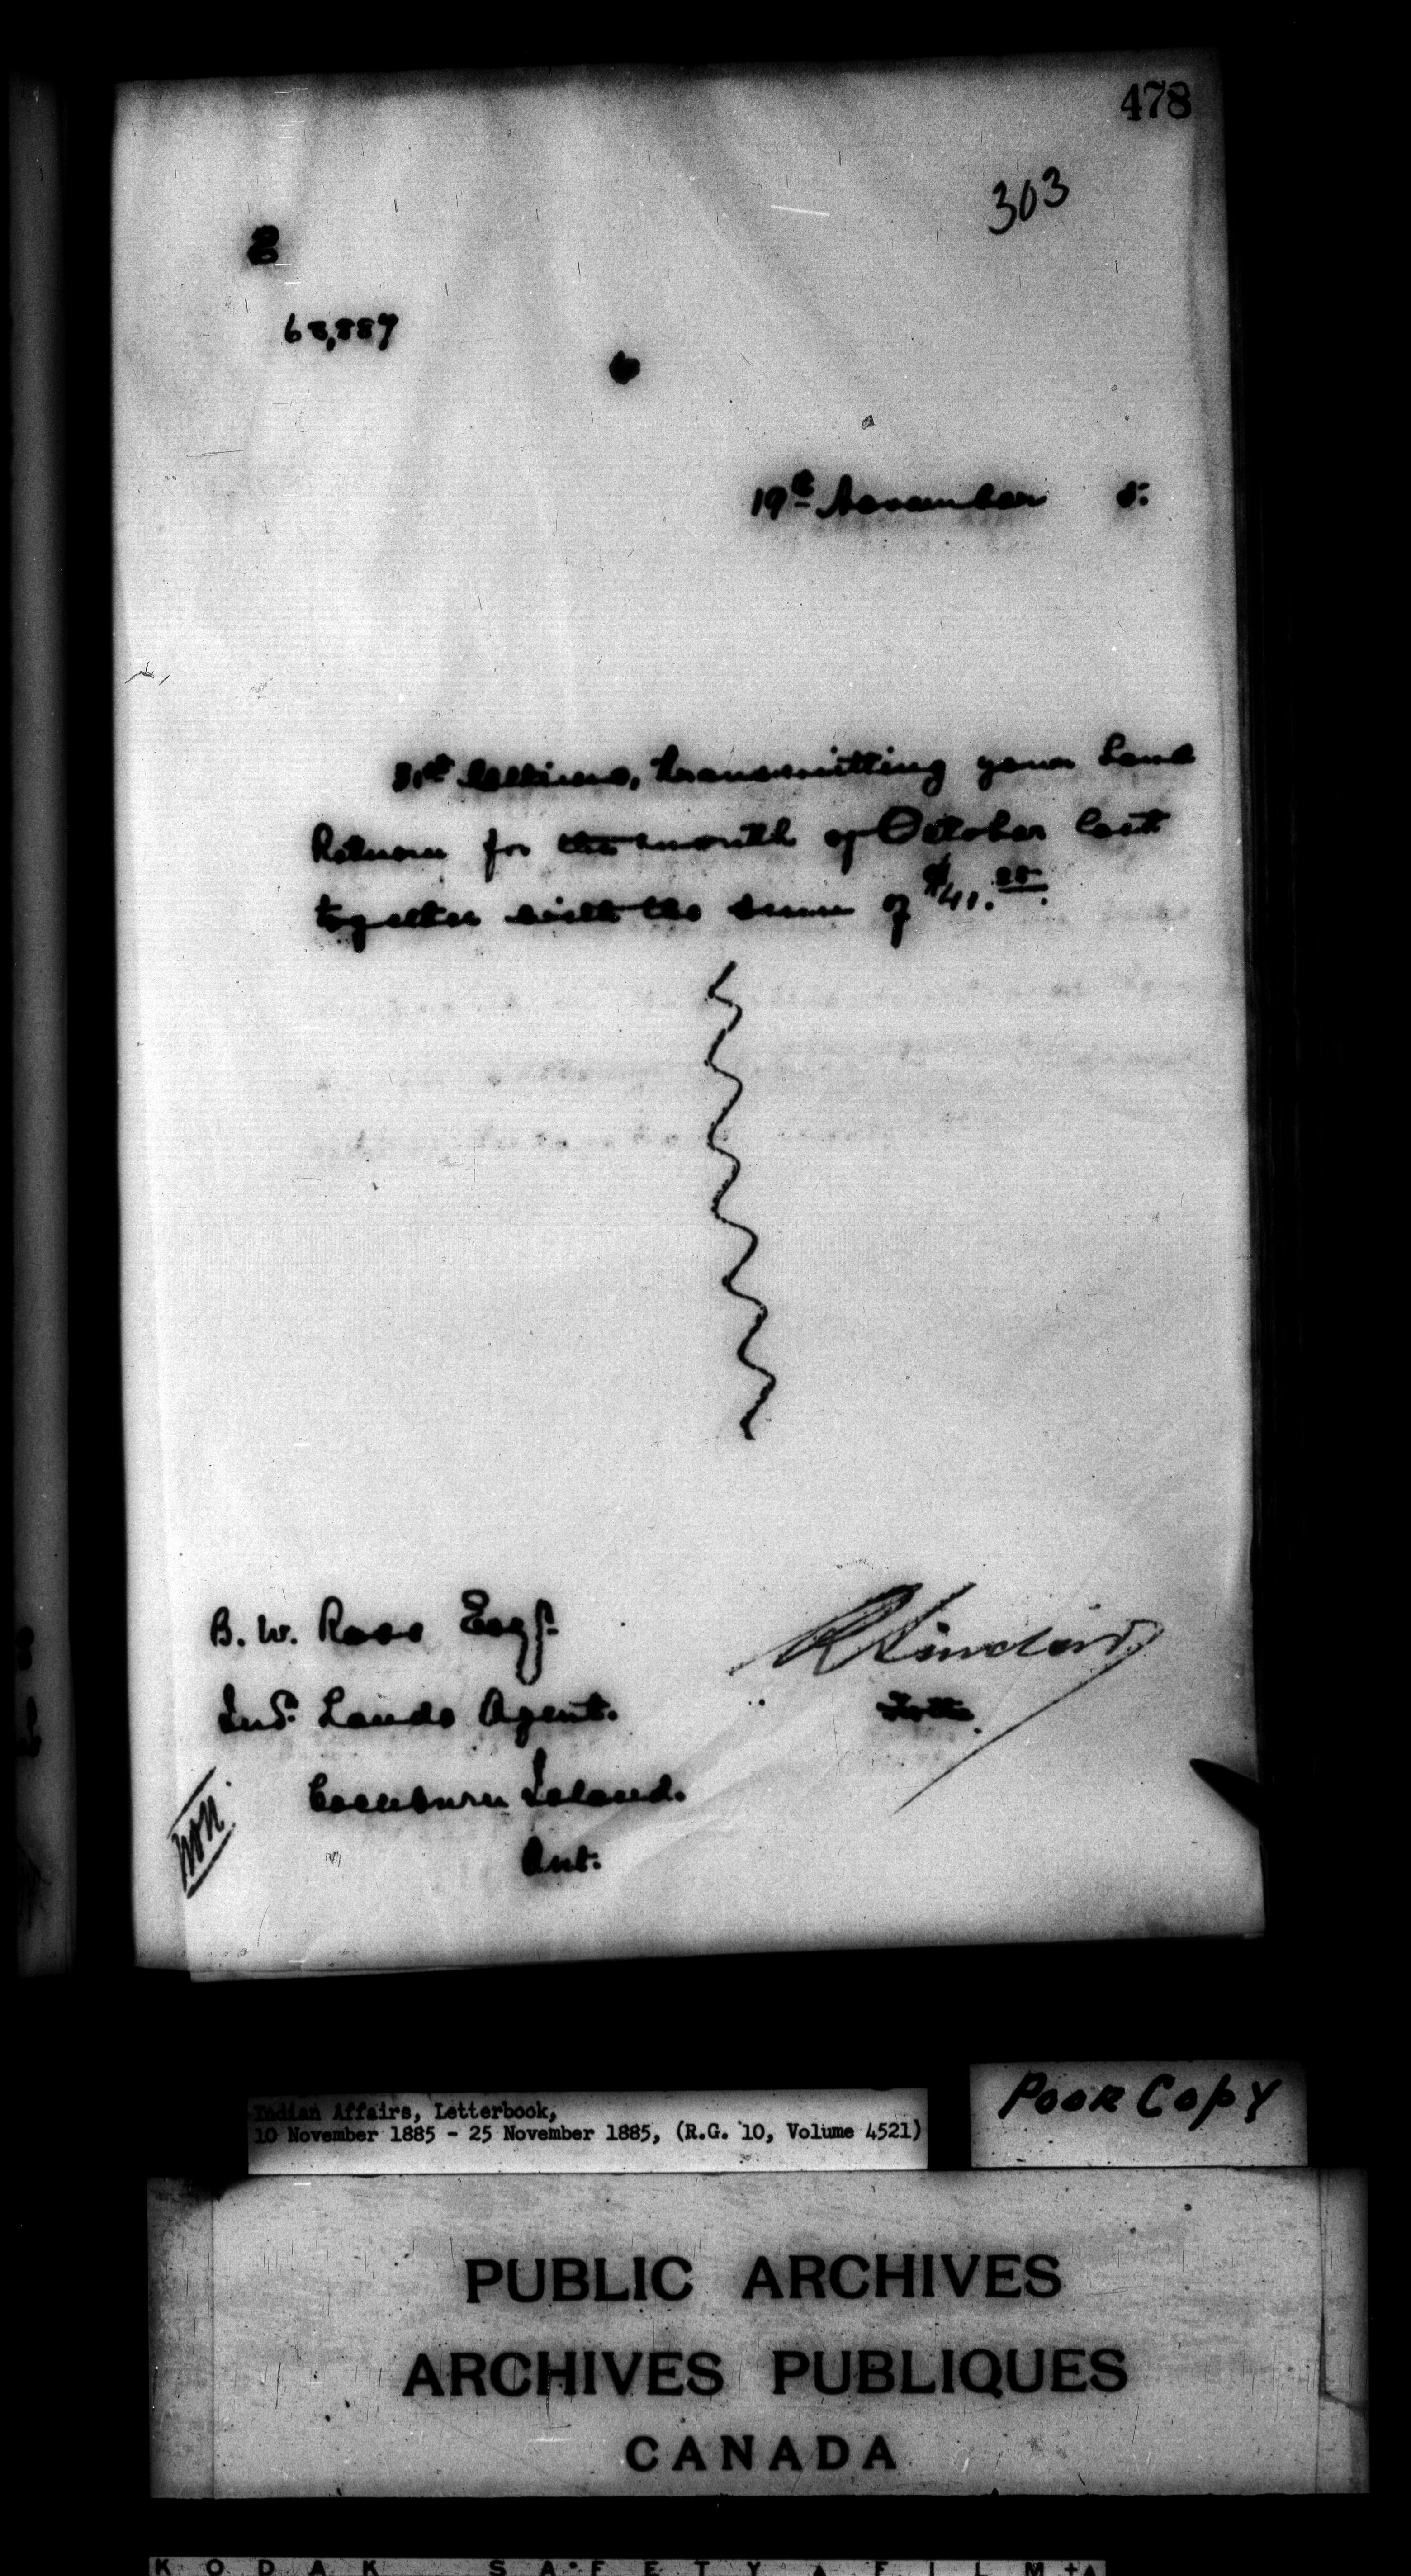 478
303
68,887
19th November 5.
31st Ultimo, transmitting your Land
Return for the month of October last
together with the sum of $41.
B. W. Ross Esqr.
Ind. Lands Agent.
Cockburn Island.
Ont.
R Sinclair
Indian Affairs, Letterbook,
10 November 1885 - 25 November 1885, (R.G. 10, Volume 4521)
POOR COPY
PUBLIC ARCHIVES
ARCHIVES PUBLIQUES
CANADA
KODAK SAFETY FILM